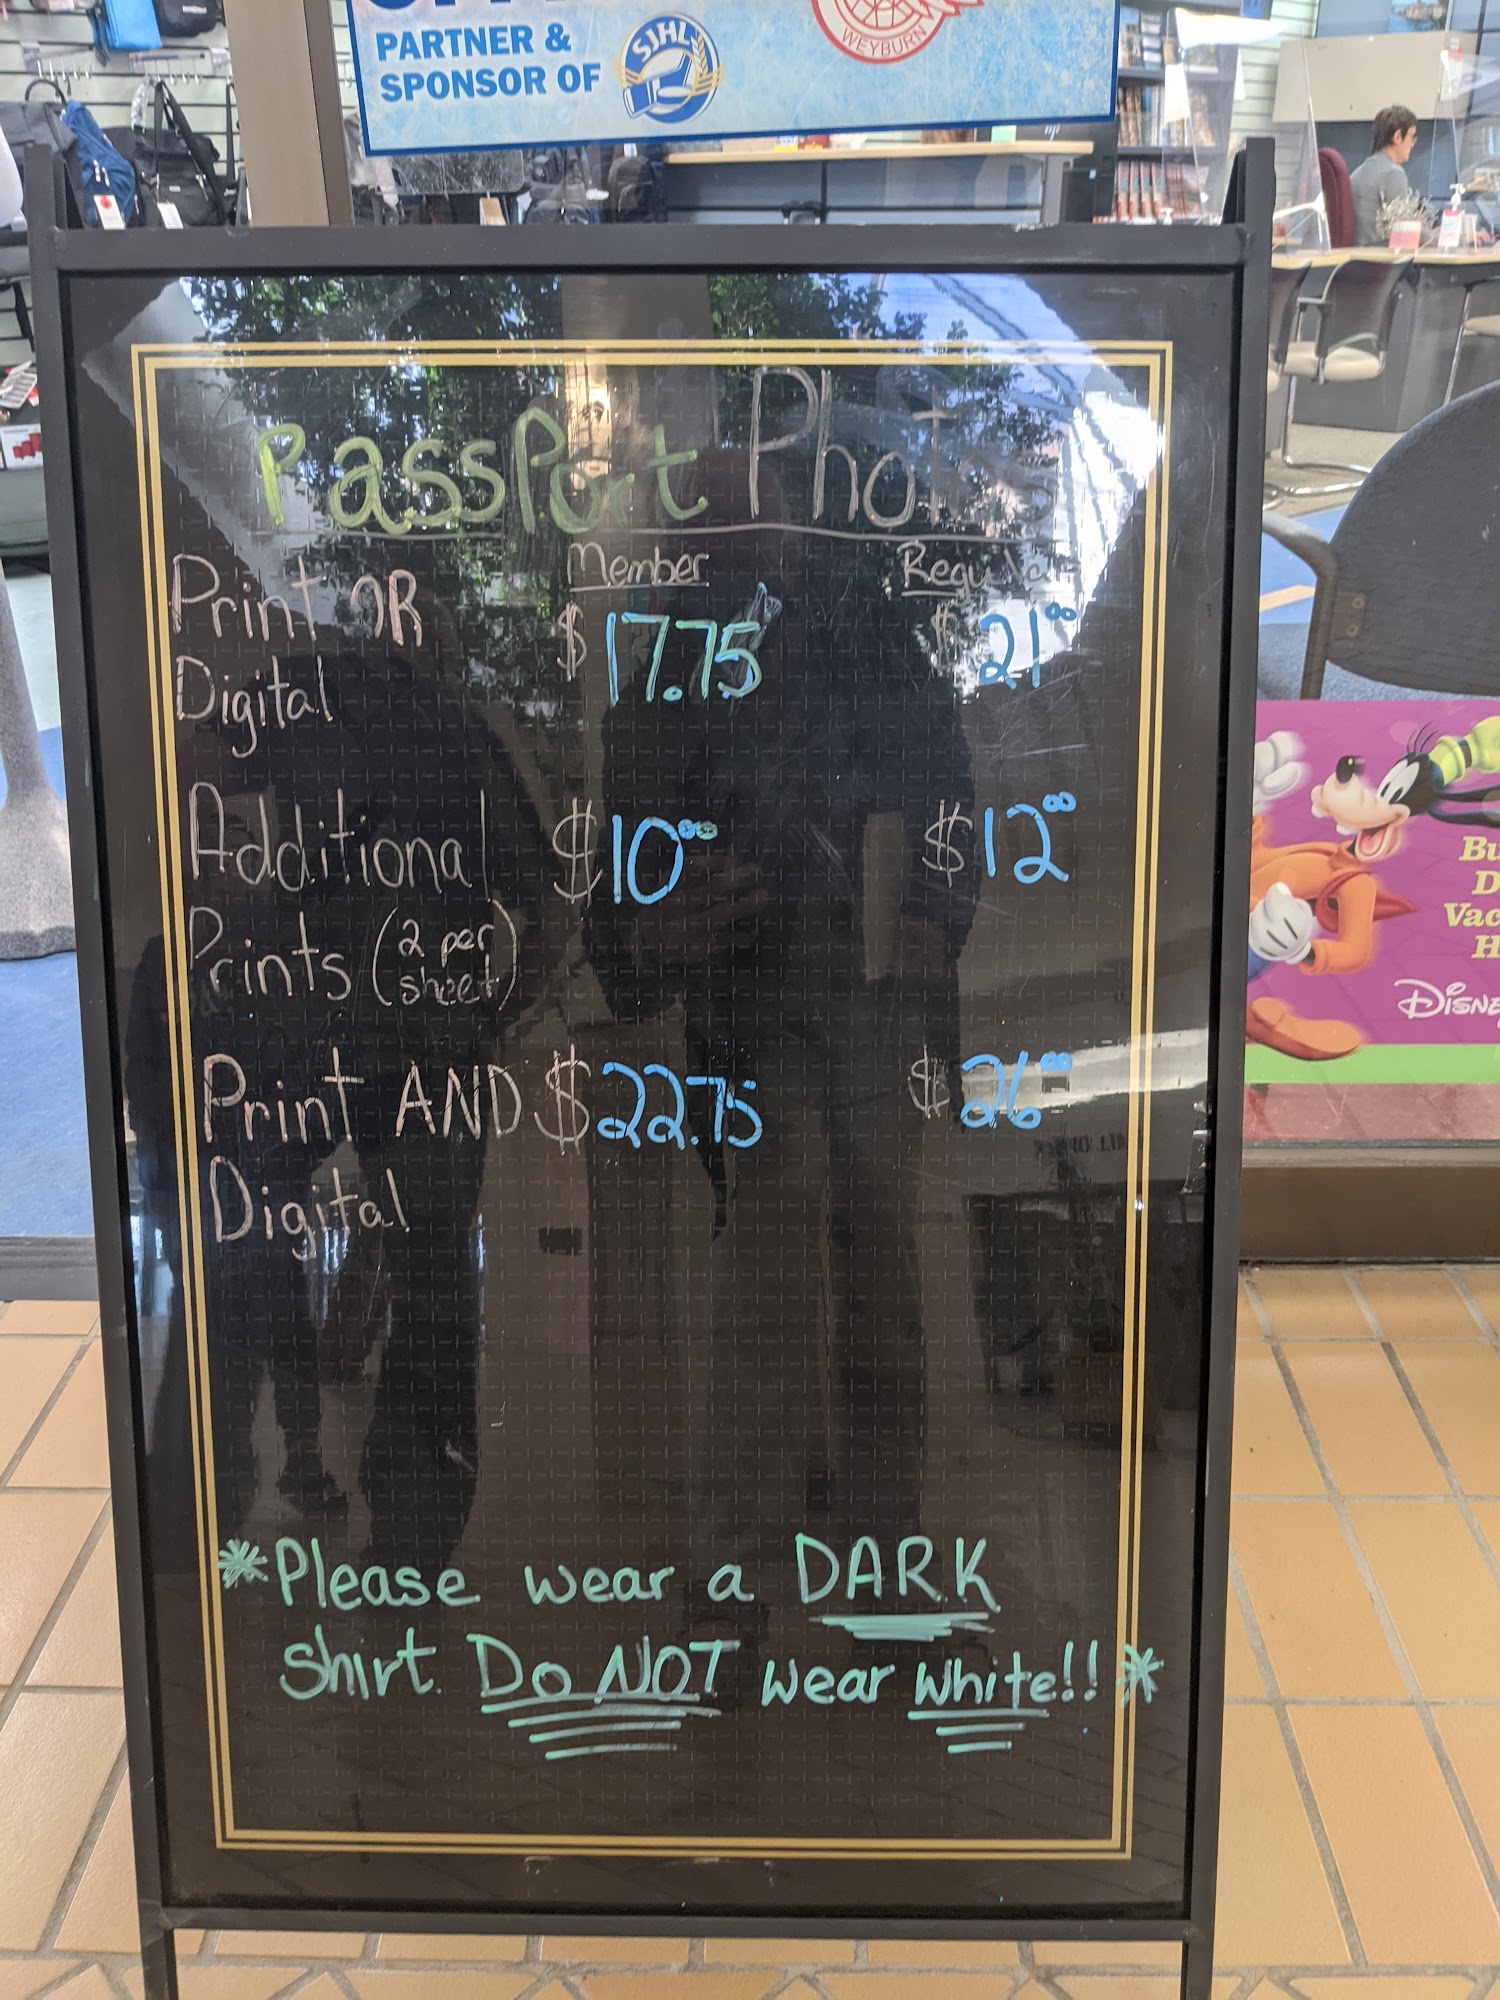 PARTNER &
SPONSOR OF
SJHL
WEYBURN
Passport Photos
Member Regular
Print OR $17.75 $21.00
Digital
Additional $10.00 $12.00
Prints (2 per
sheet)
Print AND $22.75 $26.00
Digital
*Please wear a DARK
Shirt. Do NOT wear white!!*
Disney